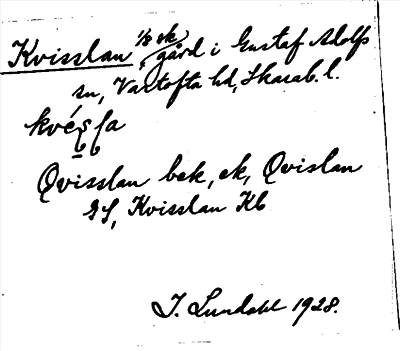 Kvisslan, 1/8 ek gård i Gustaf Adolfs
sn, Vartofta hd, Skarab. l.
Qvisslan bek, ek, Qvislan
GS, Kvisslan Kb
J. Lundahl 1928.